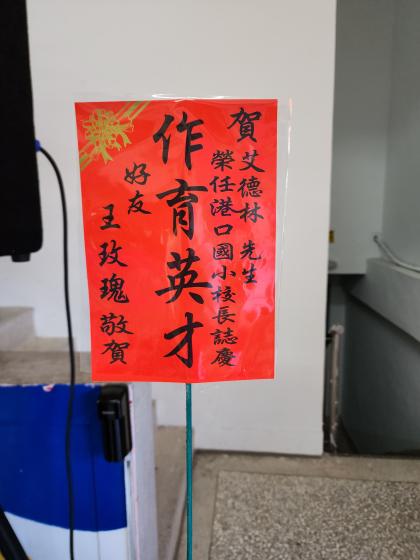 賀艾德林 先生
榮任港口國小校長誌慶
作育英才
好友
王玫瑰敬賀